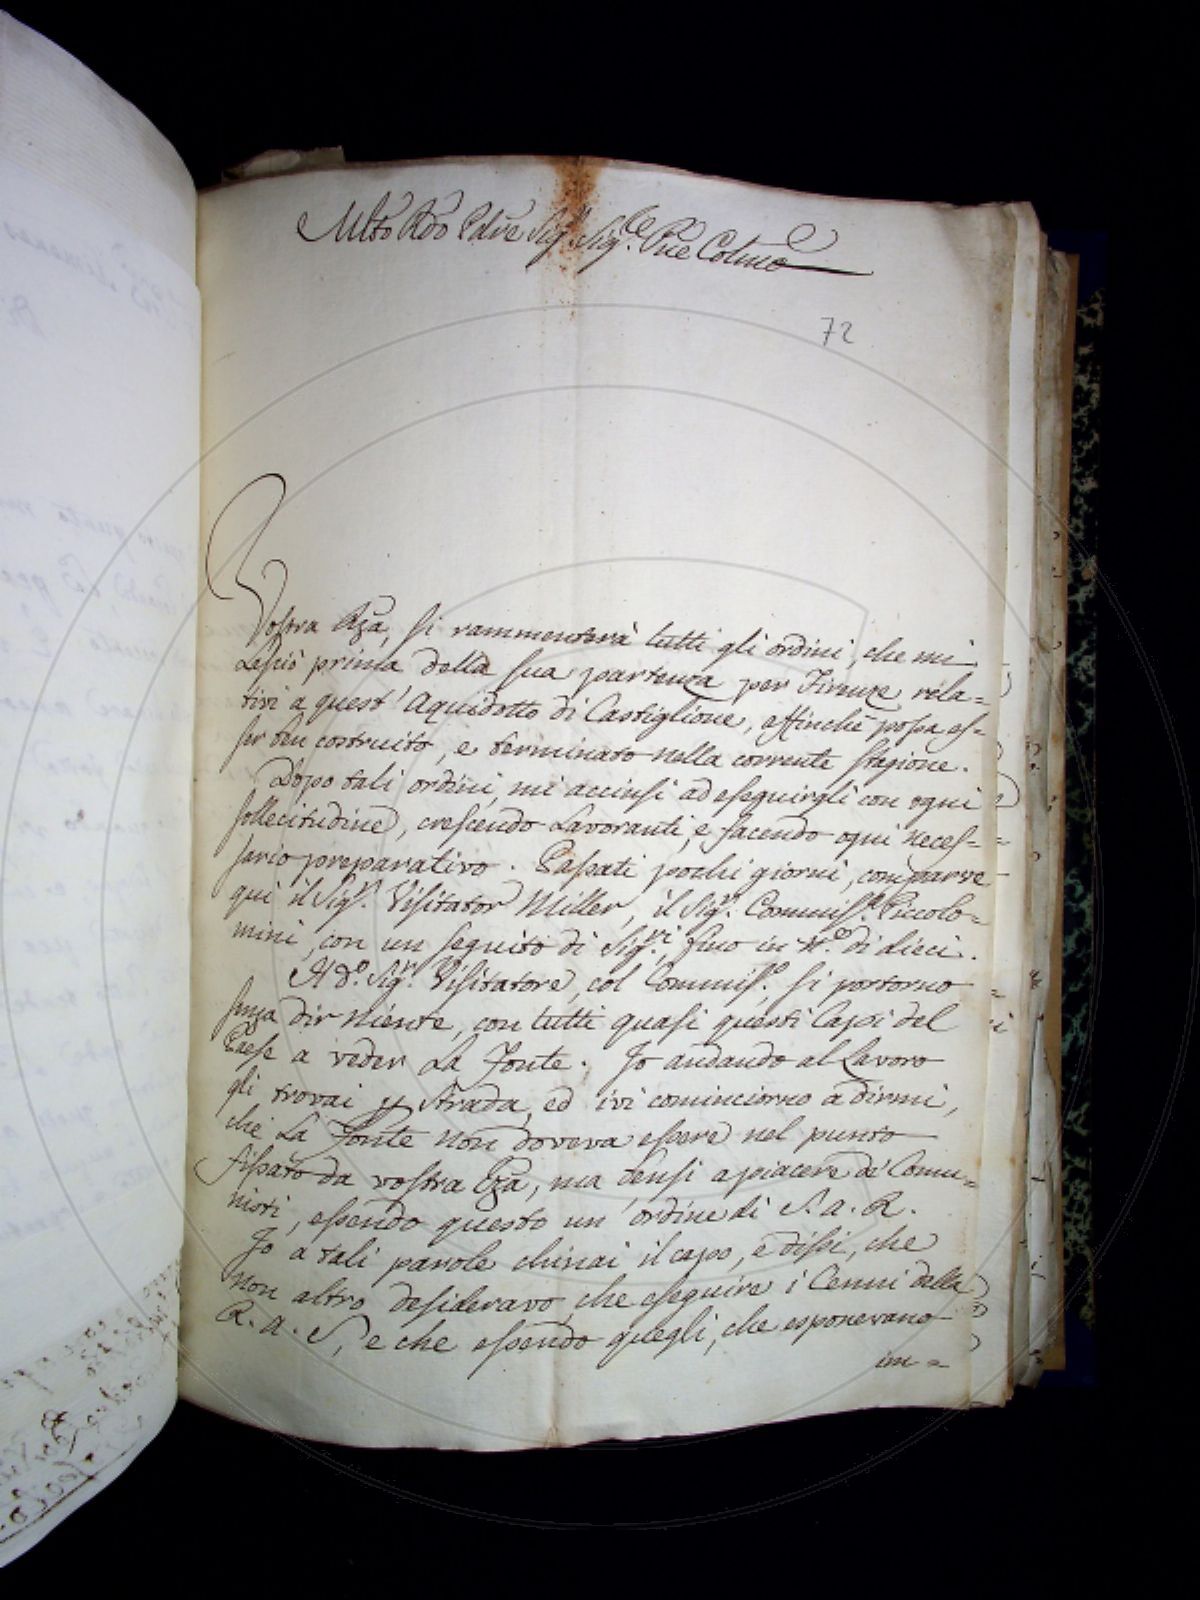 Mlto Rdo Pdre Sigr. Sigr. Pne Colmo
72
Vostra Rza, si rammenterà tutti gli ordini, che mi
Lasciò prima della sua partenza per Firenze rela=
tivi a quest' Aquidotto di Castiglione, affinchè possa es=
ser ben costruito, e terminato nella corrente stagione.
Dopo tali ordini, mi accinsi ad eseguirgli con ogni
sollecitudine, crescendo Lavoranti, e facendo ogni neces=
sario preparativo. Passati pochi giorni, comparve
qui il Sigr. Visitator Miller, il Sigr. Commisso. Piccolo=
mini, con un seguito di Sigri., fino in No. di dieci.
Il do. Sigr. Visitatore, col Commisso. si portorno
senza dir niente, con tutti quasi questi Capi del
Paese a veder La Fonte. Io andando al Lavoro
gli trovai p Strada, ed ivi cominciorno a dirmi,
che La Fonte non doveva essere nel punto
fissato da vostra Rza, ma bensì a piacere de' Comu=
nisti, essendo questo un' ordine di S. A. R.
Io a tali parole chinai il capo, e dissi, che
non altro desideravo, che eseguire i Cenni della
R. A. S, e che essendo quegli, che esponevano
im=